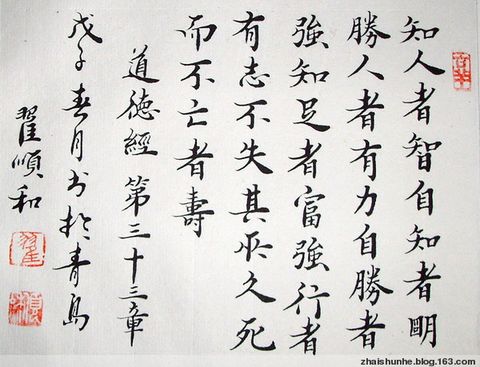 知人者智自知者明
勝人者有力自勝者
強知足者富強行者
有志不失其所久死
而不亡者壽
道德經第三十三章
戊子春月书於青島
翟順和
zhaishunhe.blog.163.com